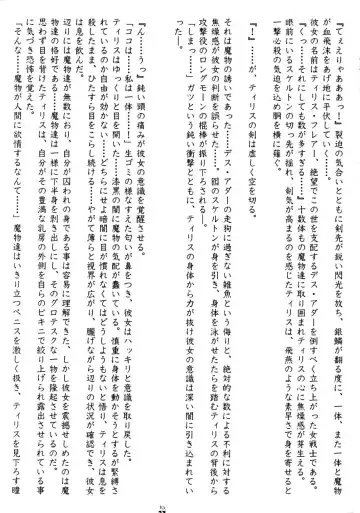 『てぇえりゃああっ!』裂迫の気合いとともに剣先が鋭い閃光を放ち、銀鱗が舞う度に、一体、一体と魔物
が血飛沫をあげ地に平伏していく。
彼女の名前はティリス・フレアー、絶望でこの世を支配するデス・アダーを倒すべく立ち上がった女戦士である。
『くっ……それにしても数が多すぎる……』十数体もの魔物達に取り囲まれティリスの心に焦燥感が芽生えた。
眼前にいる一体のスケルトンの切っ先が揺れ、剣気が高まるのを感じたティリスは、飛燕のような素早さで身を寄せると
一撃必殺の気迫を込めて胴を横に薙ぐ。
『!』が、ティリスの剣は虚しく空を切る。
それは魔物の誘いであった。デス・アダーの走狗に過ぎない雑魚という侮りと、絶対的な数による不利からくる
焦燥感が彼女の判断を誤らせた。囮のスケルトンが身を引き、身体を泳がせたたらを踏むティリスの背後から
攻撃役のロングモーンの棍棒が振り下ろされる……ガツという鈍い衝撃とともに、彼女の意識は深い闇に引き込まれてい
った。
『ん……うっ』鈍い頭の痛みが彼女の意識を覚醒させる。
『ココは……私は一体……』生ゴミの様なすえた匂いが鼻をつき、彼女はハッキリと意識を取り戻した。
ティリスはゆっくりと目を開く……漆黒の闇に魔物の気配が蠢いている。慎重に身体を動かそうとするが緊縛さ
れて自由が効かない……どちらにせよ暗闇に目が慣れなくてはどうしようもないと思い、気配を消し、息を潜め
てひたすら目をこらし続ける……やがて薄ぼんやりと視界が広がり、朧げながら辺りの状況が確認でき、彼女
は息を飲んだ。
辺りに魔物達が無数におり、自分が囚われの身である事は容易に理解できた。しかし彼女を震撼せしめたのは魔
物達の格好である……魔物達は一様に下半身を剥き出しにし、そのグロテスクな一物を隆起させているのである。
思わず目を背けたティリスは、自分がその豊満な乳房の外輪を自らのビキニで絞り上げられ露出させられている事
に気づき恐怖を覚えた。
『まさか……魔物が人間に欲情するなんて……』魔物達はいきり立つペニスを激しく扱き、ティリスを見下ろす瞳